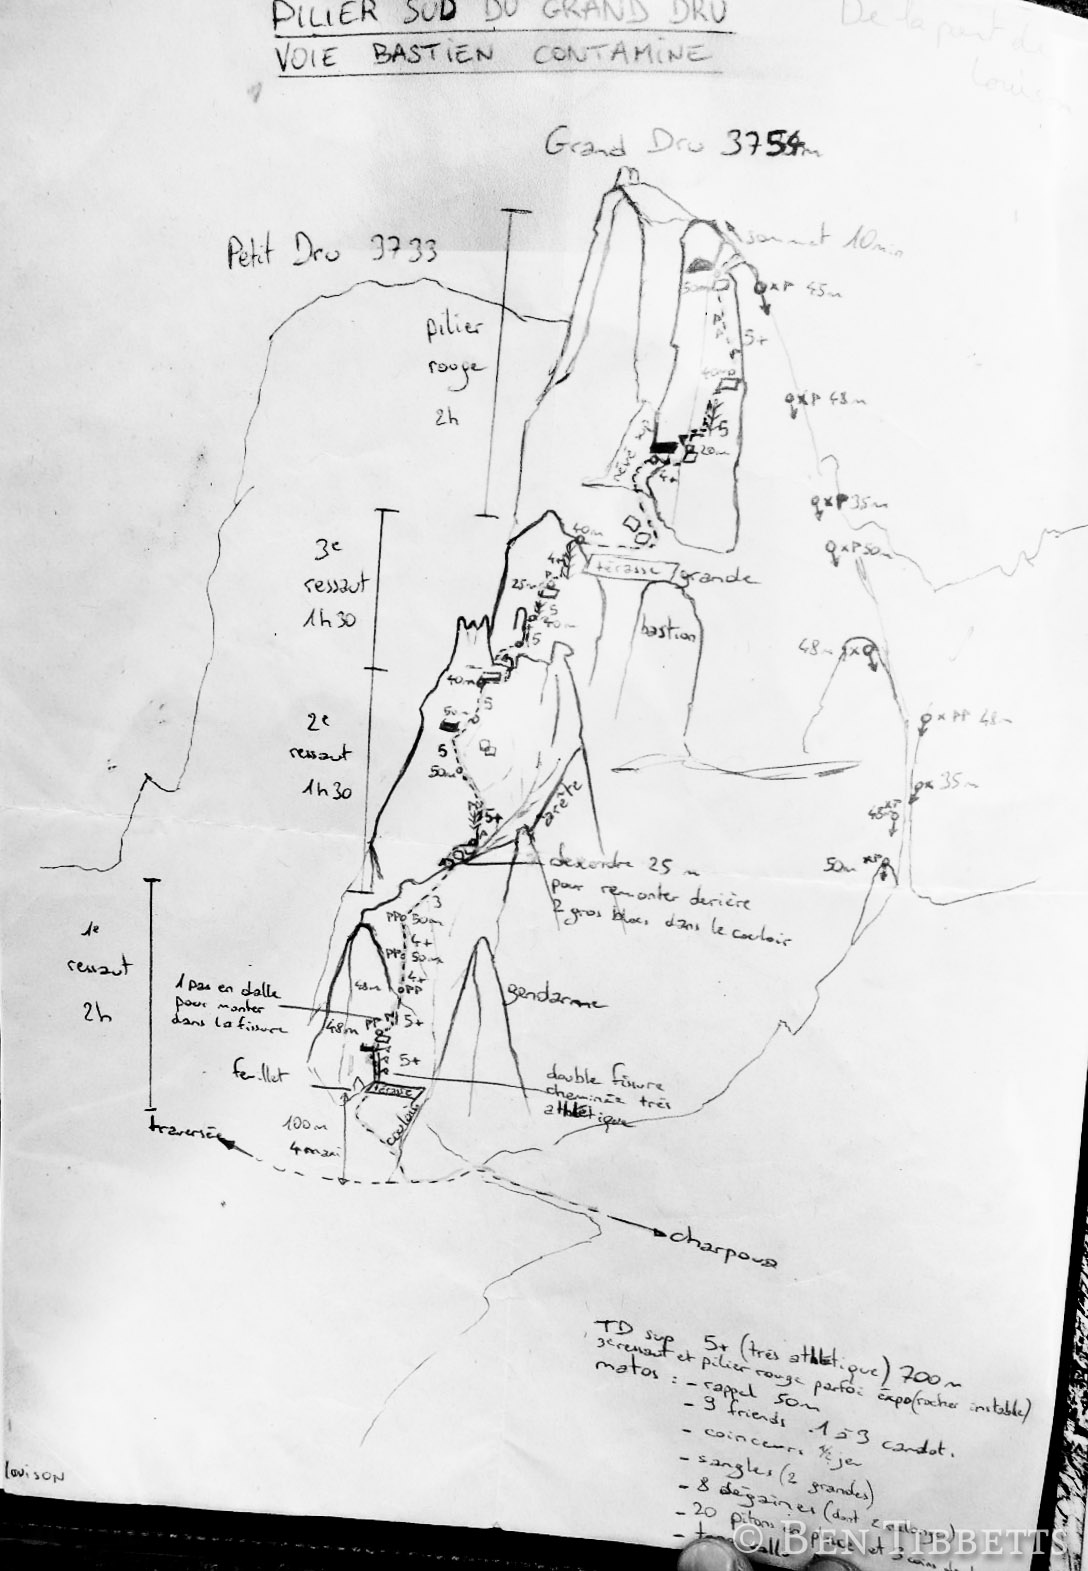 PILIER SUD DU GRAND DRU
VOIE BASTIEN CONTAMINE
De la part de
Louison
Grand Dru 3754m
Petit Dru 3733
sommet 10min
pilier
rouge
2h
50m
xP 45m
5+
40m
xP 48m
5
20m
4+
xP 35m
xP 50m
40m
térasse
grande
bastion
3e
ressaut
1h30
4+
25m
5
40m
5
48m
40m
5
50m
5
50m
5+
2e
ressaut
1h30
xPP 48m
x 35m
45m xP
50m xP
arête
descendre 25 m
pour remonter derière
2 gros blocs dans le couloir
3
PP 50m
4+
PP 50m
4+
48m PP
1e
ressaut
2h
1 pas en dalle
pour monter
dans la fissure
48m PP 5+
5+
gendarme
feuillet
térasse
double fissure
cheminée très
athlétique
couloir
100m
4 maxi
traversée
charpoua
TD sup 5+ (très athlétique) 700m
3e ressaut et pilier rouge parfoi expo (rocher instable)
matos : - rappel 50m
- 9 friends .1 à 3 camalot.
- coinceurs 1/2 jeu
- sangles (2 grandes)
- 8 dégaines (dont 2
- 20 pitons en place et 3 coins de
louison
© BEN TIBBETTS